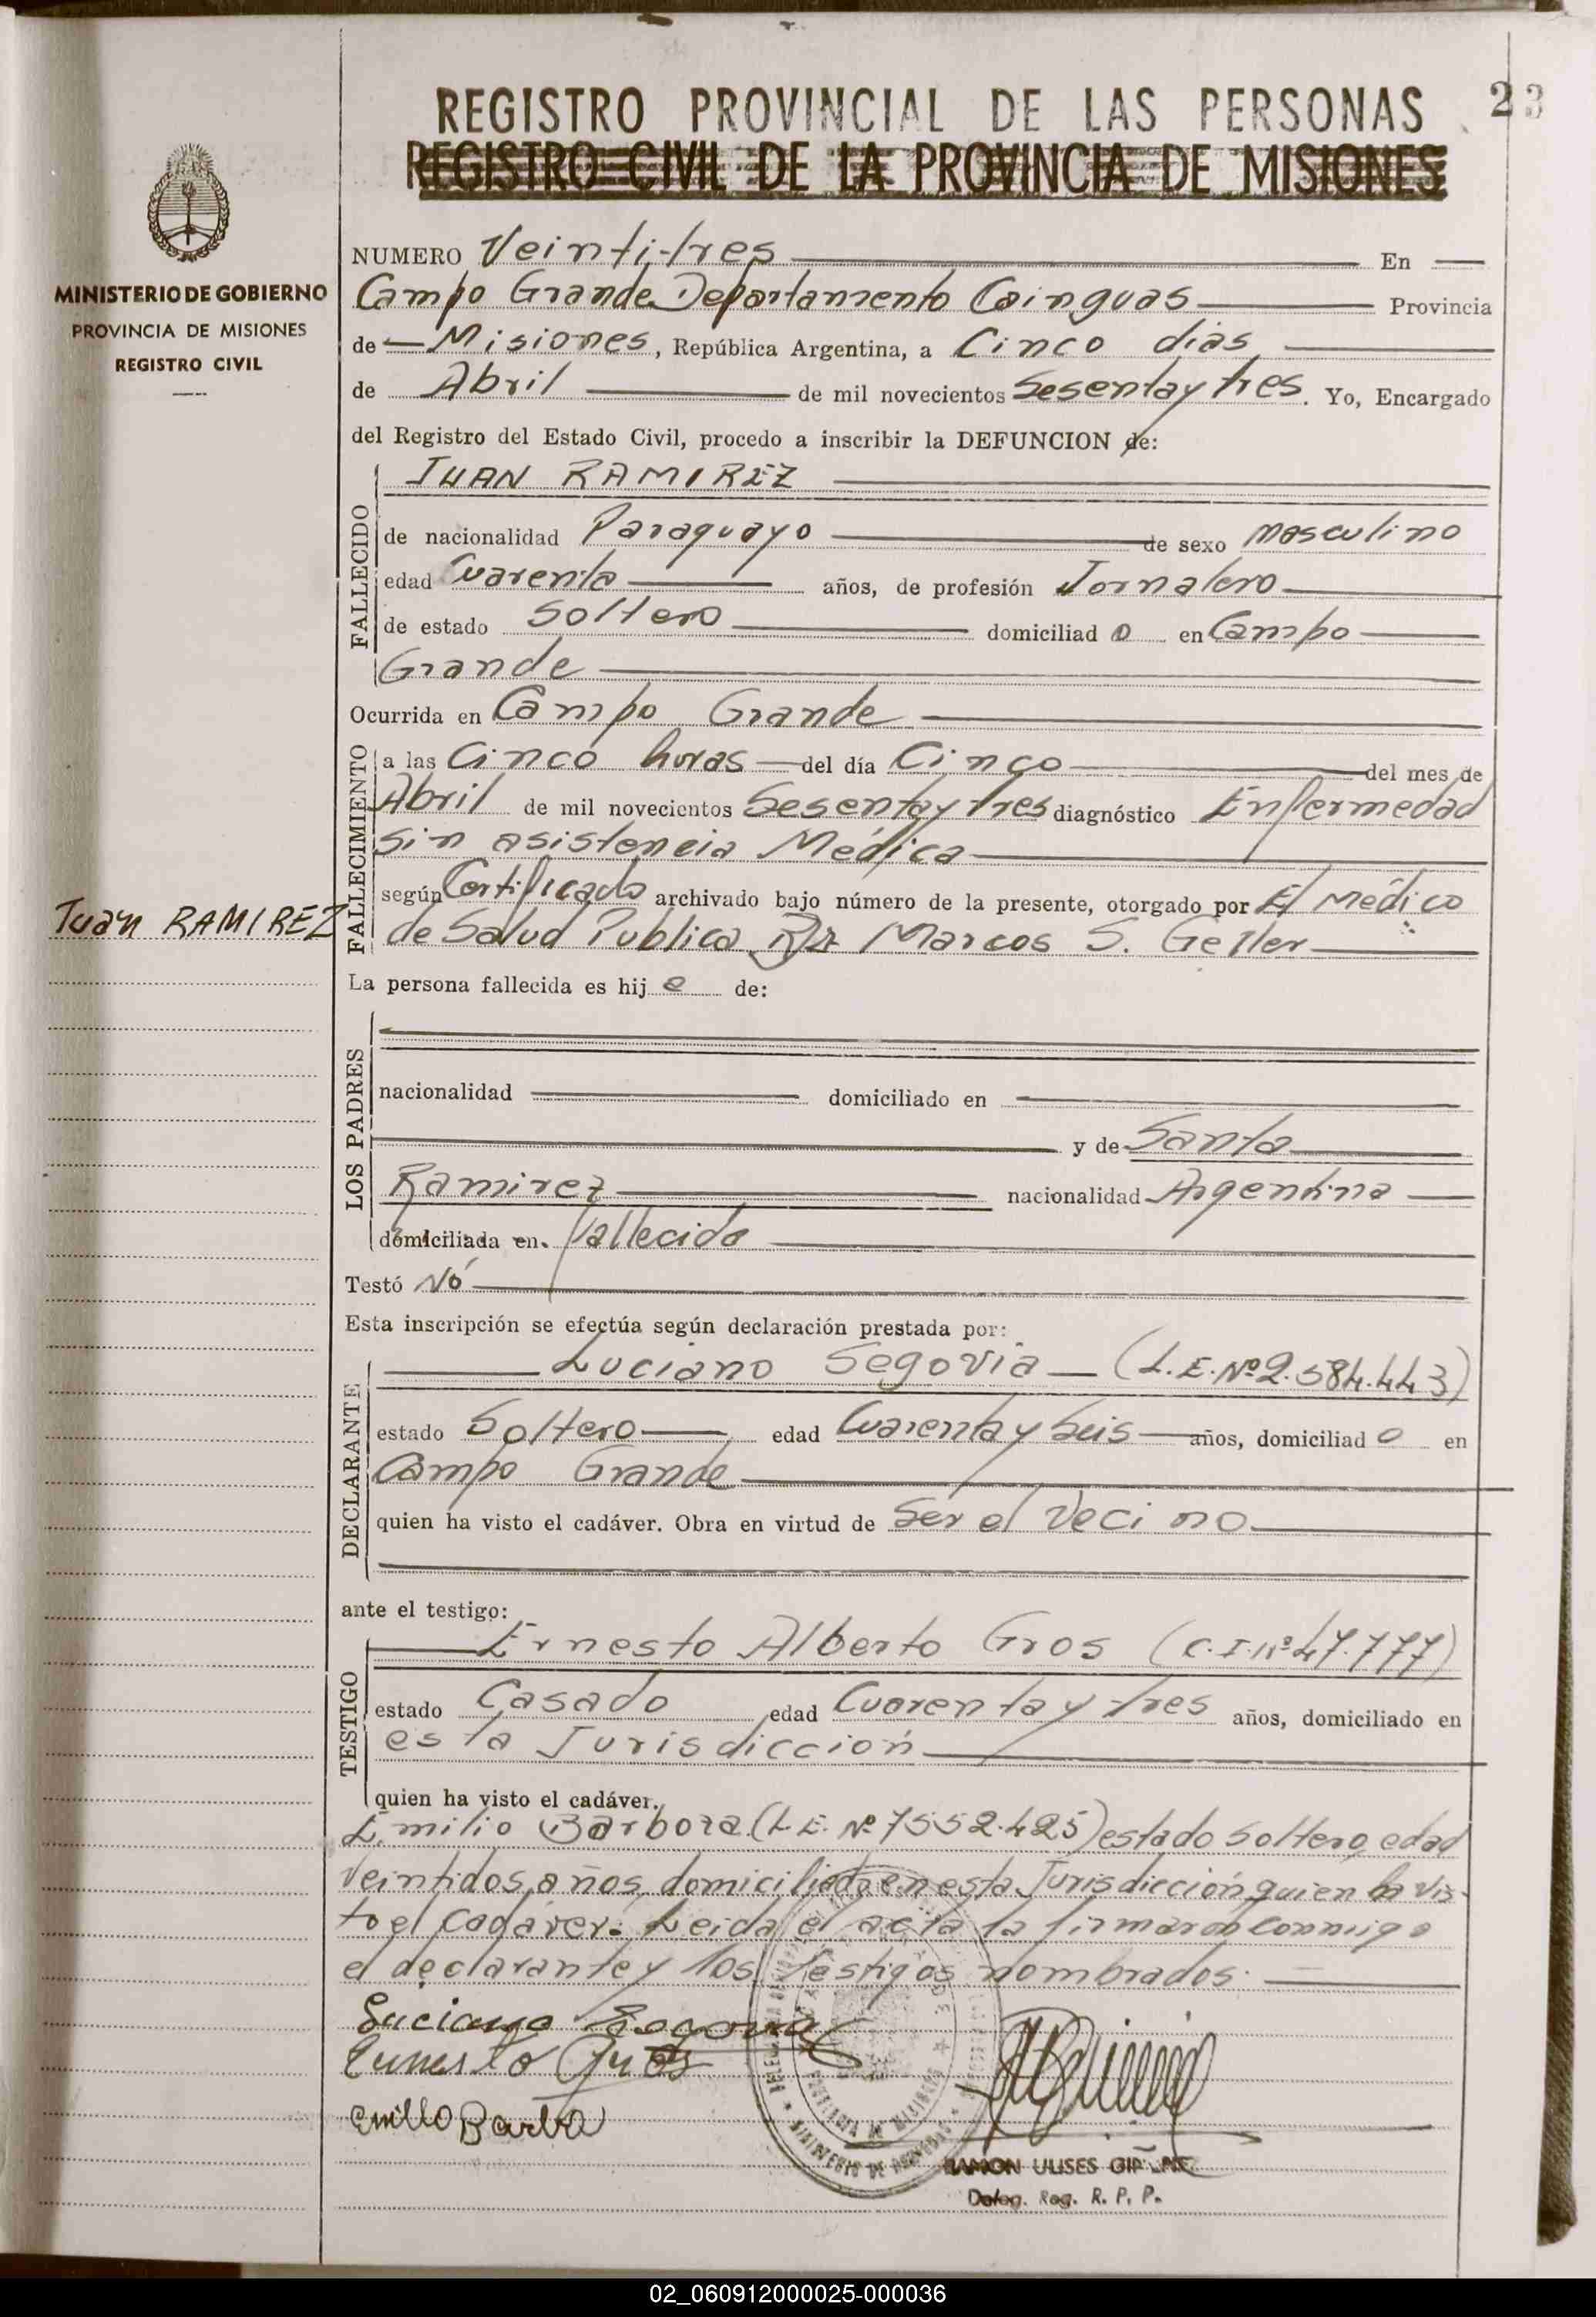 23
REGISTRO PROVINCIAL DE LAS PERSONAS
REGISTRO CIVIL DE LA PROVINCIA DE MISIONES
MINISTERIO DE GOBIERNO
PROVINCIA DE MISIONES
REGISTRO CIVIL
NUMERO Veinti-tres En
Campo Grande Departamento Cainguas Provincia
de Misiones, República Argentina, a Cinco dias
de Abril de mil novecientos Sesenta y tres. Yo, Encargado
del Registro del Estado Civil, procedo a inscribir la DEFUNCION de:
FALLECIDO
JUAN RAMIREZ
de nacionalidad Paraguayo de sexo masculino
edad Cuarenta años, de profesión Jornalero
de estado Soltero domiciliad o en Campo
Grande
Ocurrida en Campo Grande
FALLECIMIENTO
a las Cinco horas del día Cinco del mes de
Abril de mil novecientos Sesenta y tres diagnóstico Enfermedad
sin asistencia Médica
según Certificado archivado bajo número de la presente, otorgado por El Médico
Juan RAMIREZ
de Salud Publica Dr Marcos S. Geller
La persona fallecida es hij o de:
LOS PADRES
nacionalidad domiciliado en
y de Santa
Ramirez nacionalidad Argentina
domiciliada en. fallecida
Testó No
Esta inscripción se efectúa según declaración prestada por:
DECLARANTE
Luciano Segovia (L.E.Nº 2.584.443)
estado Soltero edad Cuarenta y Seis años, domiciliad o en
Campo Grande
quien ha visto el cadáver. Obra en virtud de Ser el Vecino
ante el testigo:
TESTIGO
Ernesto Alberto Gros (C.I.Nº 47.777)
estado Casado edad Cuarenta y tres años, domiciliado en
esta Jurisdicción
quien ha visto el cadáver.
Emilio Barboza (L.E. Nº 7552.425) estado Soltero, edad
Veintidos, años, domiciliado en esta Jurisdicción quien ha vis-
to el Cadáver. Leida el acta la firmaron conmigo
el declarante y los Testigos nombrados.
Luciano Segovia
Ernesto Gros
Emilio Barbo
PROVINCIA DE MISIONES
RAMON ULISES
Deleg. Reg. R. P. P.
02_060912000025-000036